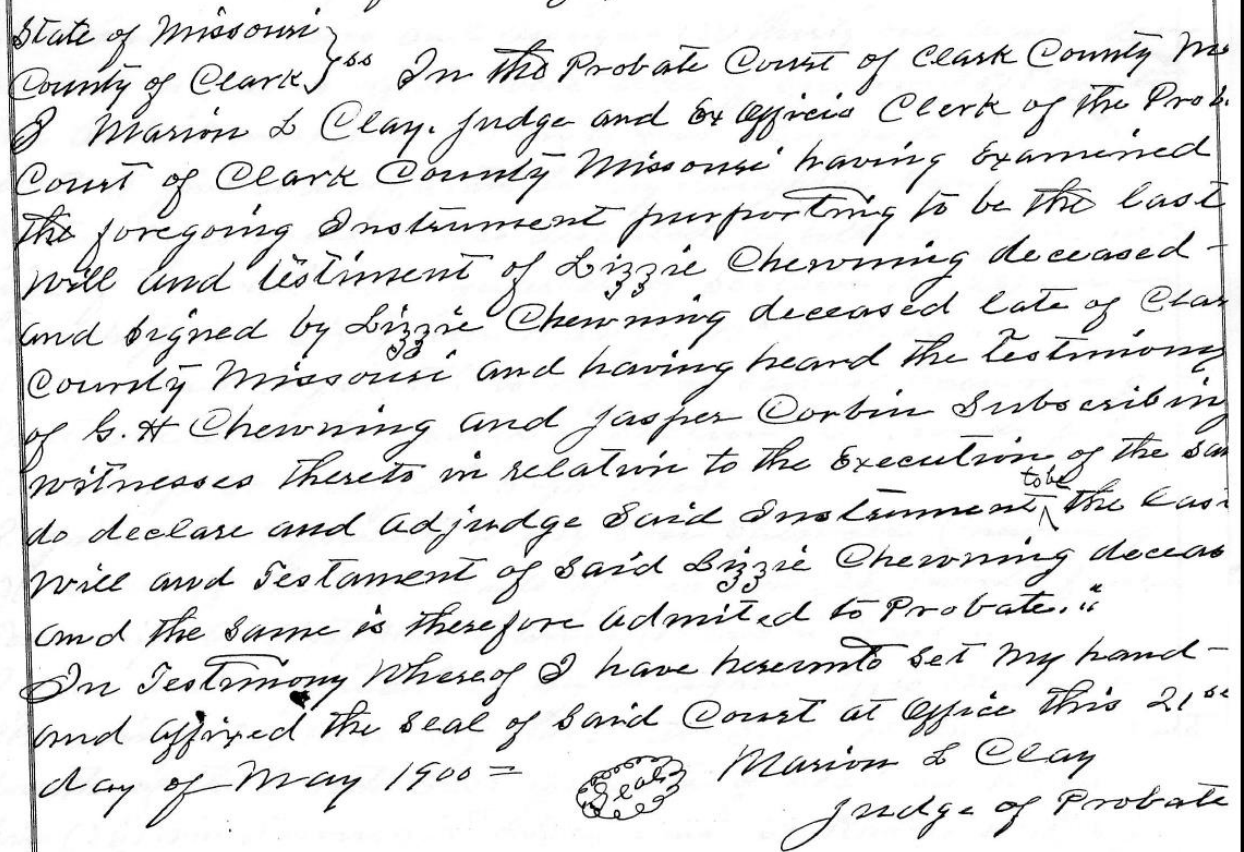 State of Missouri
County of Clark } ss In the Probate Court of Clark County Mo
I Marion L Clay. Judge and Ex Officio Clerk of the Prob.
Court of Clark County Missouri having Examined
the foregoing Instrument purporting to be the last
Will and testiment of Lizzie Chewning deceased -
and Signed by Lizzie Chewning deceased late of Clar
County Missouri and having heard the Testimony
of G. H Chewning and Jasper Corbin Subscribing
witnesses thereto in relation to the Execution of the Sam
do declare and adjudge Said Instrument to be the Las
Will and Testament of Said Lizzie Chewning deceas
and the Same is therefore admited to Probate."
In Testimony Whereof I have hereunto Set My hand -
and affixed the Seal of Said Court at Office this 21st
day of May 1900 = Seal Marion L Clay
Judge of Probate